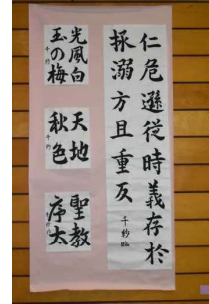 仁危遜從時義存於
拯溺方且重反
千紗臨
光風白
玉の梅
千紗
天地
秋色
千紗
聖教
序太